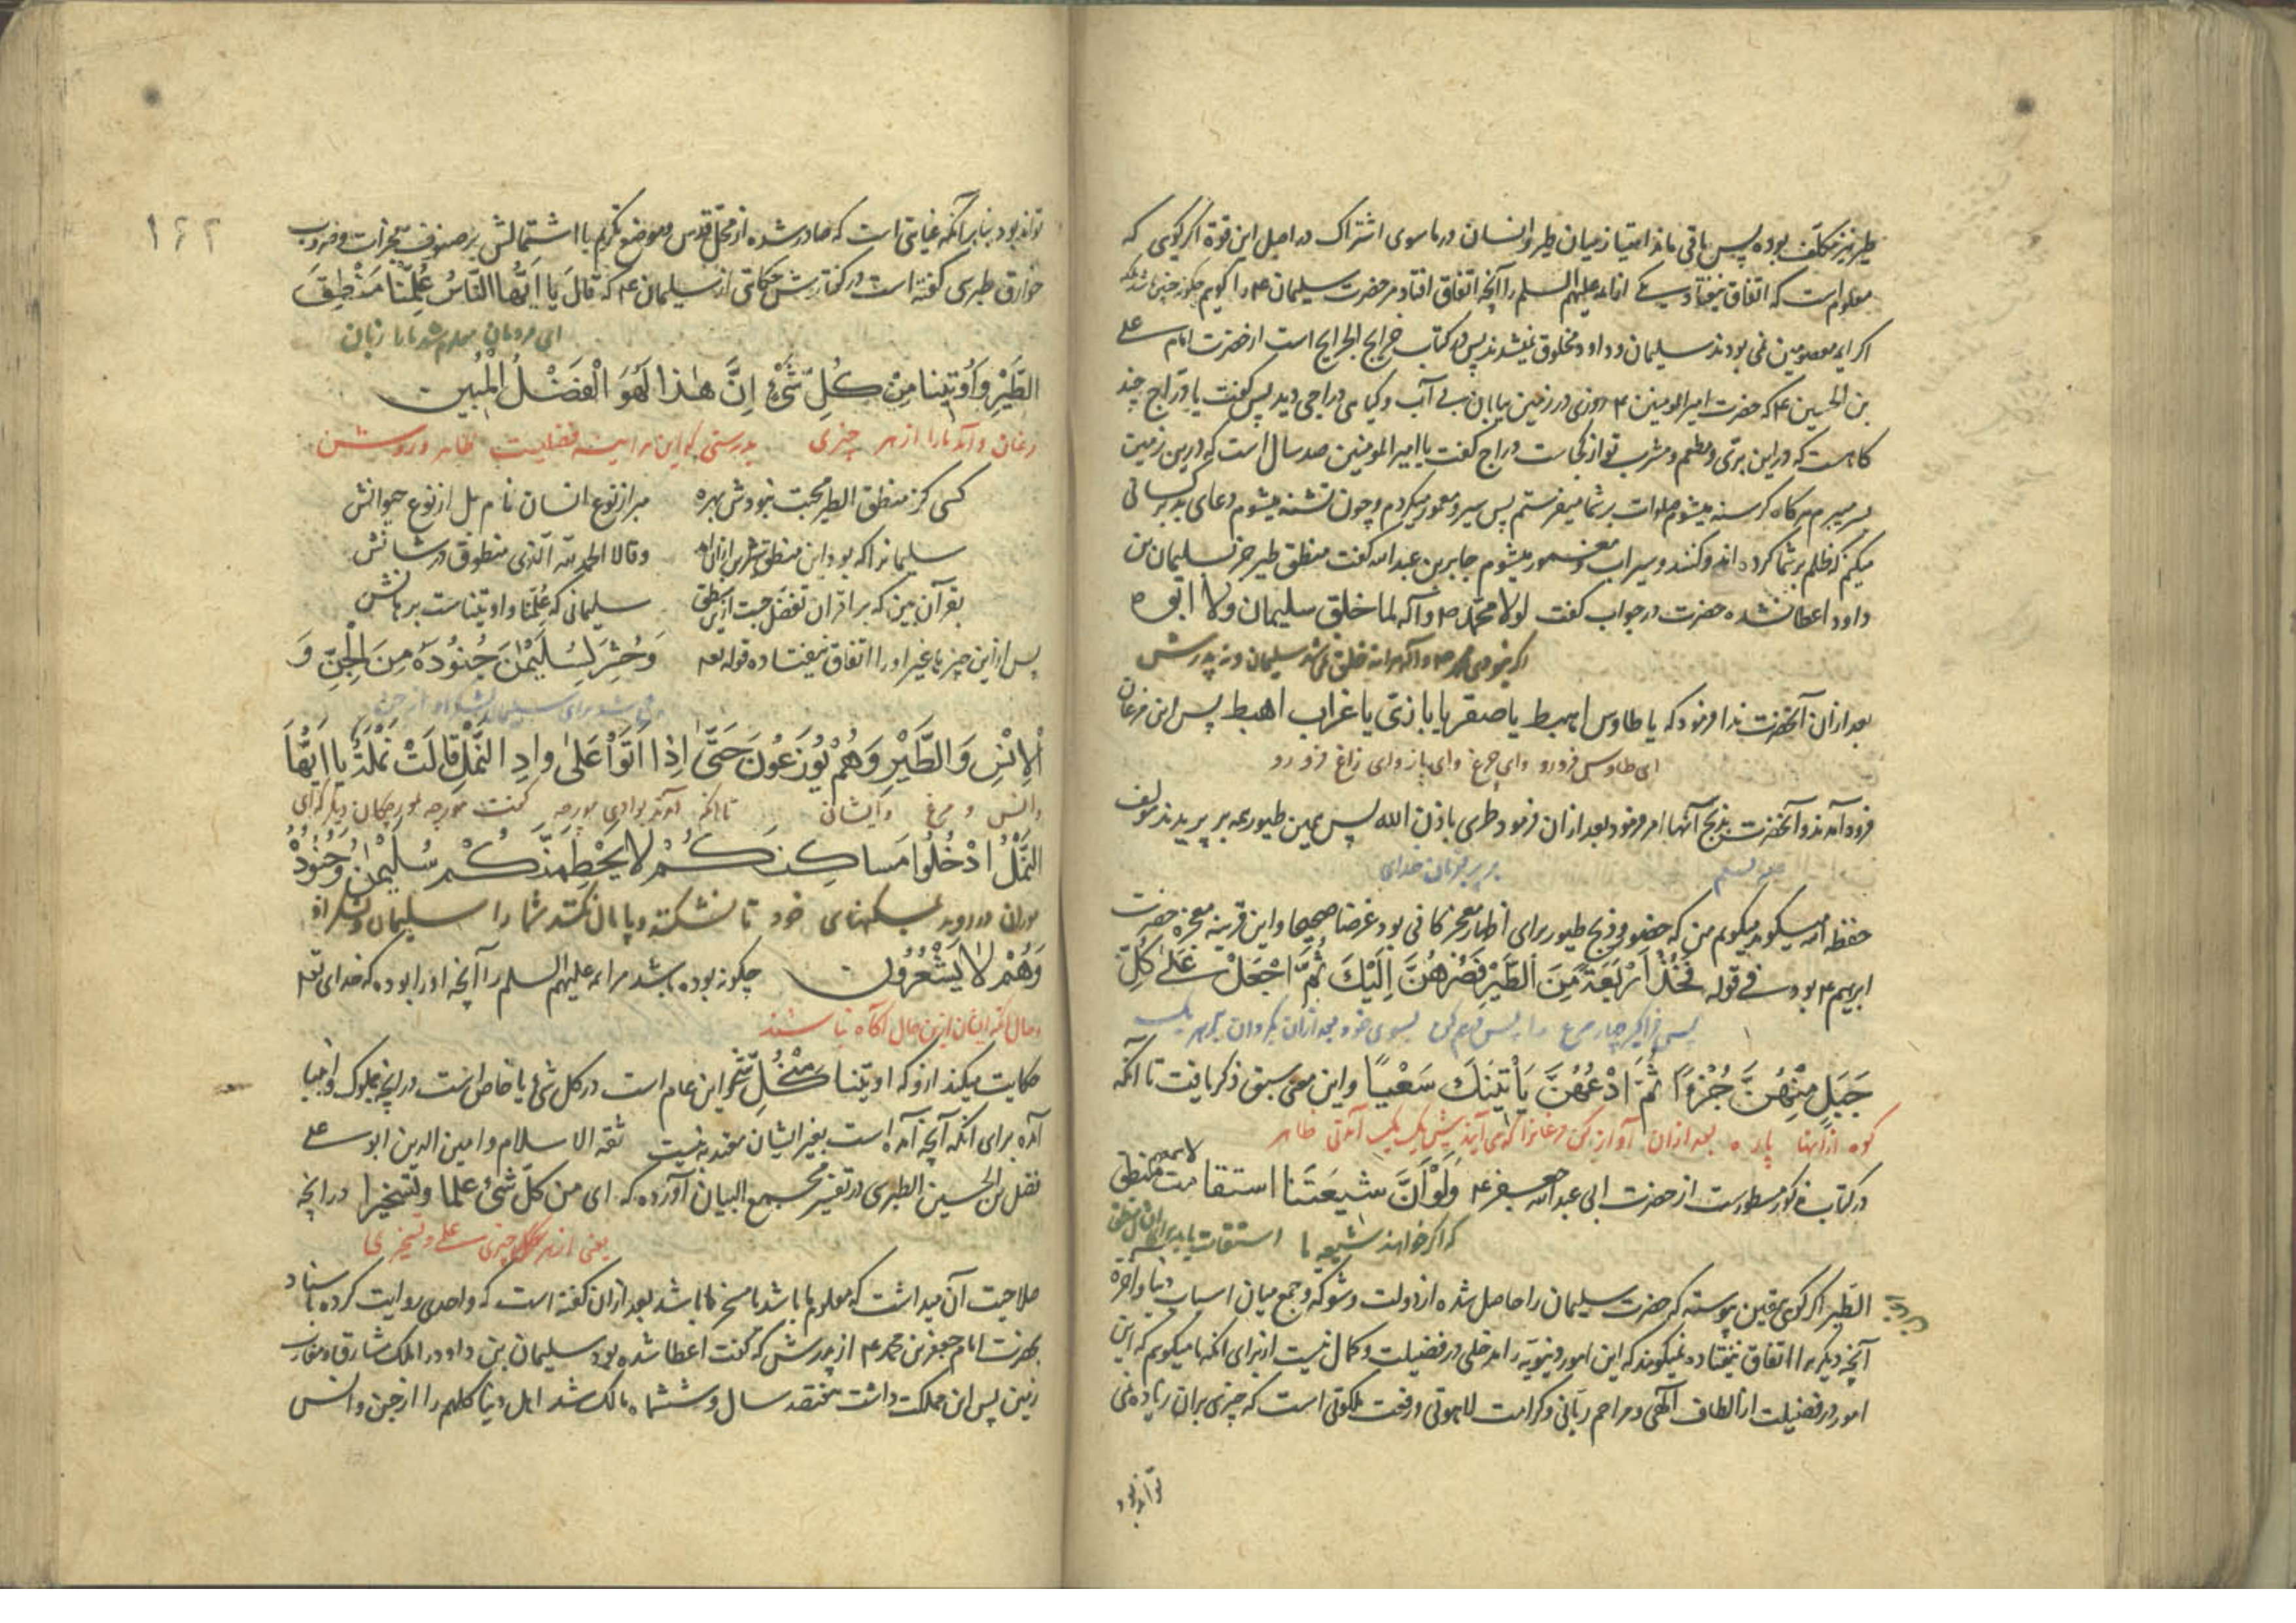 طیر نیز مکلف بوده پس باقی ماند امتیاز میان طیر و انسان در ماسوی اشتراک در اصل این قوة اگر گویی که
معلوم است که اتفاق نیفتاد یکی از ائمه علیهم السلم را آنچه اتفاق افتاد مر حضرت سلیمان ع را گویم چگونه چنین باشد بلکه
اگر ایمه معصومین نمی بودند سلیمان و داود مخلوق نمیشدند پس در کتاب خرایج الجرایح است از حضرت امام علی
بن الحسین ع که حضرت امیر المومنین ع روزی در زمین بیابان بی آب و گیاهی دراجی دید پس گفت یا دراج چند
گاهست که در این بری و مطعم و مشرب تو از کجاست دراج گفت یا امیر المومنین صد سال است که درین زمین
بسر میبرم هر گاه گرسنه میشوم صلوات بر شما میفرستم پس سیر و معمور میگردم و چون تشنه میشوم دعای بد بر کسانی
میکنم که ظلم بر شما کرده اند و کنند و سیراب و مغمور میشوم جابر بن عبد الله گفت منطق طیر جز سلیمان بن
داود اعطا نشده حضرت در جواب گفت لولا محمد ص و آله لما خلق سلیمان ولا ابوه
اگر نبودی محمد ص و آله هر آینه خلق نمی شد سلیمان و نه پدرش
بعد از آن آنحضرت ندا فرمود که یا طاوس اهبط یا صقر یا بازی یا غراب اهبط پس این مرغان
ای طاوس فرو رو وای چرغ وای باز وای زاغ فرو رو
فرود آمدند و آنحضرت بذبح آنها امر فرمود بعد از آن فرمود طری باذن الله پس همین طیور همه بر پریدند مولف
بر پر بفرمان خدای
حفظه الله میگوید میگویم من که حضور و ذبح طیور برای اظهار معجز کافی بود غرضا صحیحا و این قرینه معجزه حضرت
ابرهیم ع بود فی قوله فَخُذْ اَرْبَعَةً مِنَ الطَّيْرِ فَصُرْهُنَّ اِلَيْكَ ثُمَّ اجْعَلْ عَلىٰ كُلِّ
پس فرا گیر چهار مرغ را پس فراهم کن بسوی خود بعد از آن بگردان بر هر یک
جَبَلٍ مِنْهُنَّ جُزْءًا ثُمَّ ادْعُهُنَّ يَأْتينَكَ سَعْيًا و این معنی سبق ذکر یافت تا آنکه
کوه از آنها پاره بعد از آن آواز کن مرغانرا که می آیند پیش یک بیک آمدنی ظاهر
در کتاب مذکور مسطورست از حضرت ابی عبد الله جعفر ع وَلَوْ اَنَّ شيعَتَنا استقامت لاسمعوا منطق
که اگر خواهند شیعه ما استقامت یابد
الطیر اگر گویی بیقین پیوسته که حضرت سلیمان را حاصل شده از دولت و شوکه و جمع میان اسباب دنیا و آخره
آنچه دیگر برا اتفاق نیفتاده نمیگویند که این امور دنیویه را مدخلی در فضیلت و کمال نیست از برای آنکه ما میگویم که این
امور در فضیلت از الطاف الهی و مراحم ربانی و کرامت لاهوتی و رفعت ملکوتی است که چیزی بر آن زیاده نمی
تواند بود
۱۶۲
تواند بود بنا بر آنکه غایتی است که صادر شده از محل قدس و موضع تکریم با اشتمالش بر صنوف معجزات و ضروب
خوارق طبرسی گفته است در گفتارش حکایتی از سلیمان ع که قالَ يا اَيُّهَا النّاسُ عُلِّمْنا مَنْطِقَ
ای مردمان معلوم شد ما را زبان
الطَّيْرِ وَ اُوتينا مِنْ كُلِّ شَيْءٍ اِنَّ هٰذا لَهُوَ الْفَضْلُ الْمُبين
مرغان و آمد ما را از هر چیزی بدرستی که این هر آینه فضلیست ظاهر و روشن
کسی کز منطق الطیر محبت نبودش بهره مبر از نوع انسان نام بل از نوع حیوانش
سلیمانرا که بود این منطق وقالا الحمد لله الذی منطوق در شانش
بقرآن بین که بر اقران تفضل جست سلیمانی که علمنا و اوتیناست برهانش
پس از این چیزها غیر او را اتفاق نیفتاده قوله تعه وَحُشِرَ لِسُلَيْمٰنَ جُنُودُهُ مِنَ الْجِنِّ وَ
جمع شد برای سلیمان لشکر او از جن
الْاِنْسِ وَ الطَّيْرِ وَهُمْ يُوزَعُونَ حَتّىٰ اِذا اَتَوْا عَلىٰ وادِ النَّمْلِ قالَتْ نَمْلَةٌ يا اَيُّهَا
و انس و مرغ و ایشانی تا آنکه آمدند بوادی مورچه گفت مورچه مورچگان دیگر که ای
النَّمْلُ ادْخُلُوا مَساكِنَكُمْ لا يَحْطِمَنَّكُمْ سُلَيْمٰنُ وَجُنُودُهُ
موران در روید بمسکنهای خود تا نشکند و پامال نکند شما را سلیمان و لشکر او
وَهُمْ لا يَشْعُرُون چگونه بوده باشد مر ائمه علیهم السلم را آنچه او را بوده که خدای تعه
و حال آنکه ایشان ازین حال آگاه نباشند
حکایت میکند ازو که اوتینا مِنْ كُلِّ شَيْءٍ و این عام است در کل شیء یا خاص است در آنچه بملوک و انبیا
آمده برای آنکه آنچه آمده است بغیر ایشان معتد به نیست ثقه الاسلام و امین الدین ابو علی
فضل بن الحسین الطبرسی در تفسیر مجمع البیان آورده که ای من کل شیء علما و تسخیرا در آنچه
یعنی از هر چیزی علمی و تسخیری
صلاحیت آن میداشت که معلوم ما باشد یا مسخر ما باشد بعد از آن گفته است که واحدی روایت کرده باسناد
بحضرت امام جعفر بن محمد ع از پدرش که گفت اعطا شده بود سلیمان بن داود را ملک مشارق و مغارب
زمین پس این مملکت داشت هفتصد سال و ششماه مالک شد اهل دنیا کلهم را از جن و انس